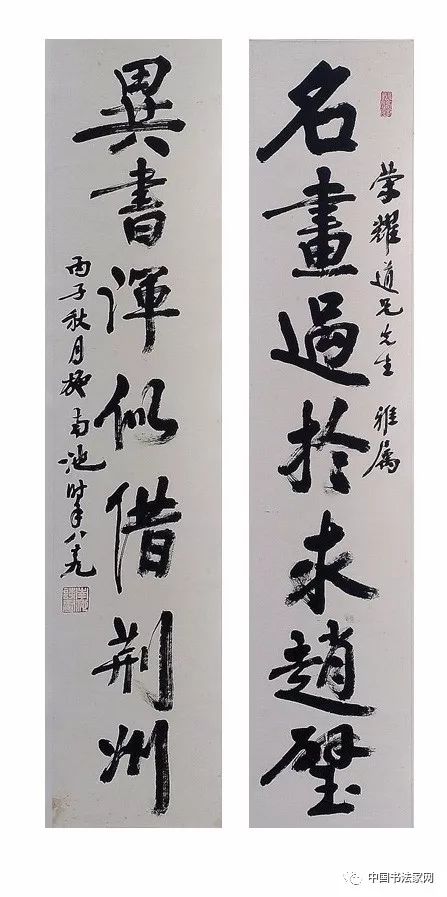 荣耀道兄先生 雅属
名畫過於求趙璧
異書渾似借荆州
丙子秋月施南池时年八十九
中国书法家网